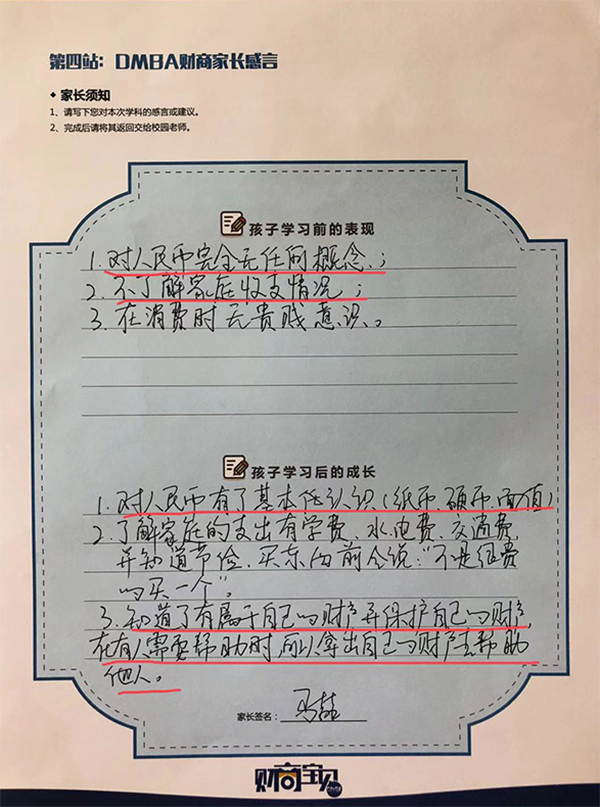 第四站：DMBA财商家长感言
家长须知
1、请写下您对本次学科的感言或建议。
2、完成后请将其返回交给校园老师。
孩子学习前的表现
1.对人民币完全无任何概念.；
2.不了解家庭收支情况；
3.在消费时无贵贱意识。
孩子学习后的成长
1.对人民币有了基本性认识(纸币.硬币.面值)
2.了解家庭的支出有学费、水电费、交通费,
并知道节俭、买东西前会说:"不是红费
的买一个"。
3.知道了有属于自己的财产并保护自己的财产,
在有人需要帮助时,可以拿出自己的财产去帮助
他人。
家长签名：
财商宝贝